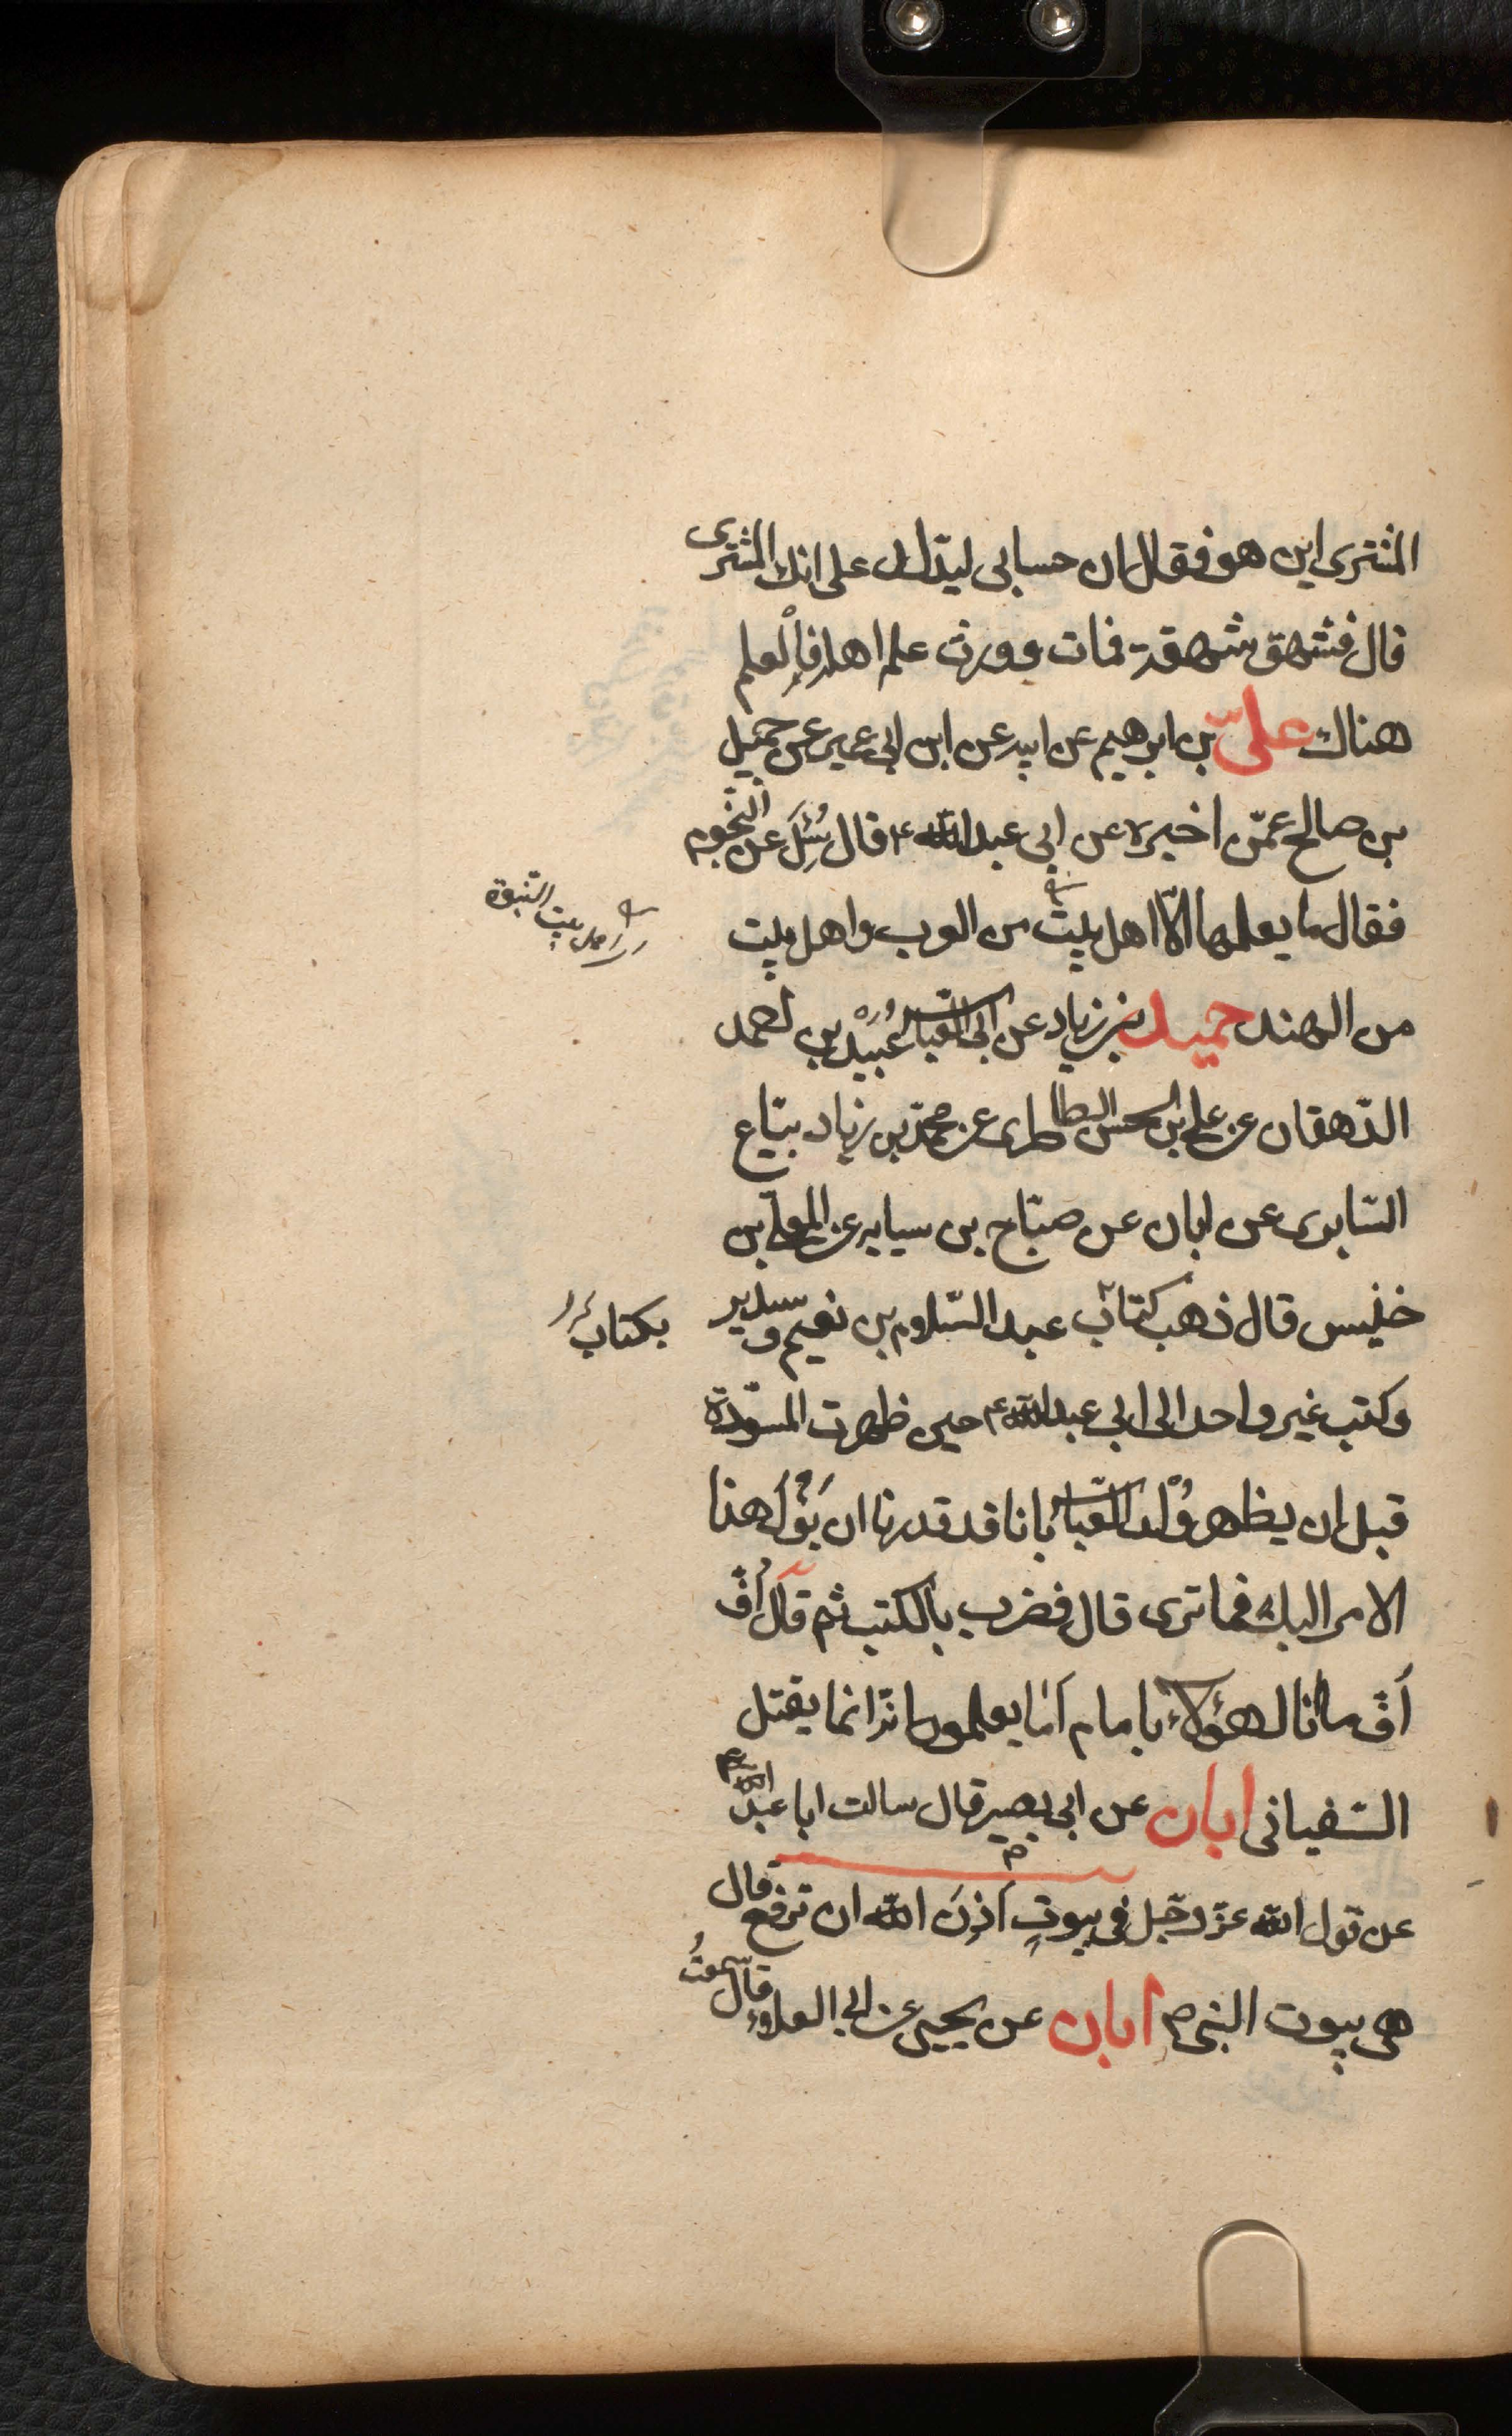 المشترى اين هو فقال ان حسابى ليدل على انك المشترى
قال فشهق شهقة فمات وورث علمه اهله فالعلم
هناك علىّ بن ابرهيم عن ابيه عن ابن ابى عمير عن جميل
بن صالح عمّن اخبره عن ابى عبد الله ع قال سُئِلَ عن النّجوم
فقال ما يعلمها الّا اهل بيت من العرب واهل بيت
اهل بيت النّبوة
من الهند حميد بن زياد عن ابى العبّاس عُبَيْد بن احمد
الدّهقان عن على بن الحسن الطاطرى عن محمّد بن زياد بيّاع
السّابرى عن ابان عن صبّاح بن سيابه عن المعلّى بن
خنيس قال ذهب كتاب عبد السّلام بن نعيم و سدير
بكتاب
وكتب غير واحد الى ابى عبد الله ع حين ظهرت المسوّدة
قبل ان يظهر وُلْد العبّاس بانا قد قدرنا ان يَؤُلَ هذا
الامر اليك فما ترى قال فضرب بالكتب ثم قال أُفّ
أفّ ما انا لهؤلاء بامام أمَا يعلمون انّه انما يقتل
السّفيانى ابان عن ابى بصير قال سالت ابا عبد الله ع
عن قول الله عزّ وجّل فى بيوتٍ أذِنَ الله ان ترفع قال
هى بيوت النبى ص ابان عن يحيى عن ابى العلاء قال سمعتُ